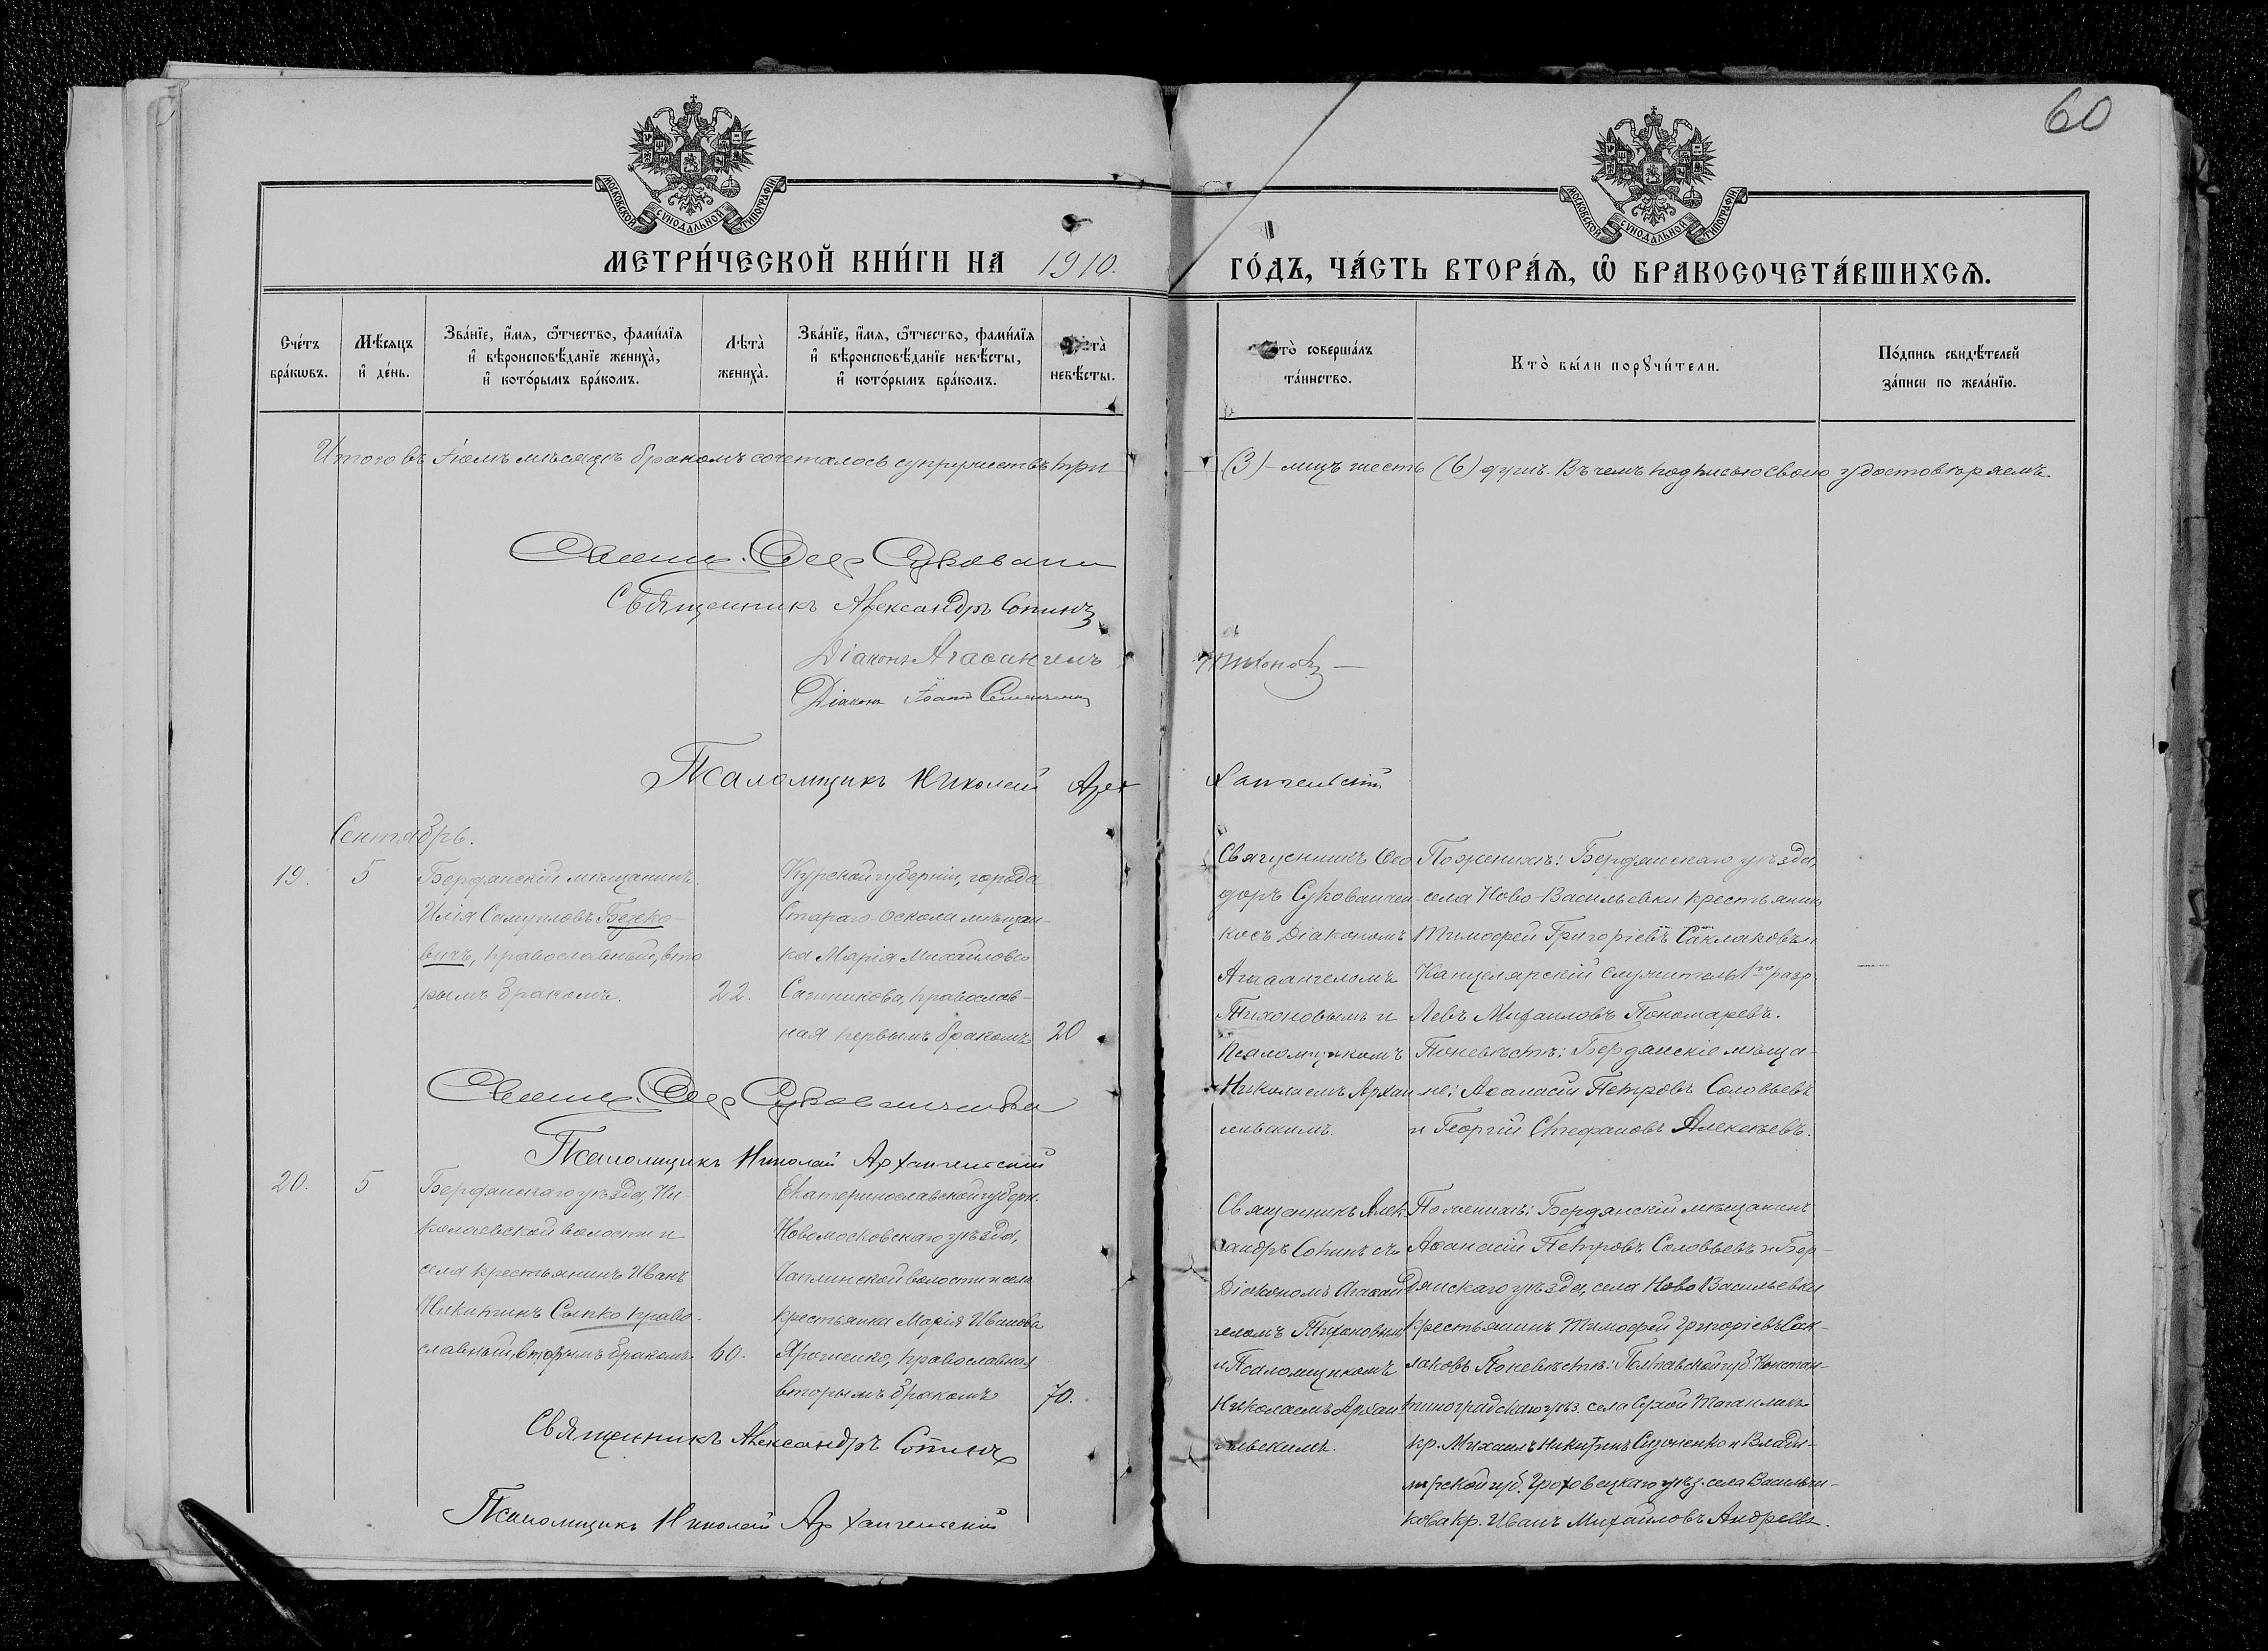 60
МОСКОВСКОЙ СУНОДАЛЬНОЙ ТИПОГРАФІИ
МОСКОВСКОЙ СУНОДАЛЬНОЙ ТИПОГРАФІИ
МЕТРИ́ЧЕСКОЙ КНИ́ГИ НА 1910. ГО́ДЪ, ЧА́СТЬ ВТОРА́Ѧ, Ѽ БРАКОСОЧЕТА́ВШИХСѦ.
Сче́тъ бра́кѡвъ.
Мѣ́сяцъ и҆ де́нь.
Зва́нїе, и҆́мя, ѻ҆́тчество, фами́лїя и҆ вѣроисповѣ́данїе жениха̀, и҆ кото́рымъ бра́комъ.
Лѣта̀ жениха̀.
Зва́нїе, и҆́мя, ѻ҆́тчество, фами́лїя и҆ вѣроисповѣ́данїе невѣ́сты, и҆ кото́рымъ бра́комъ.
Лѣта̀ невѣ́сты.
Кто̀ соверша́лъ та́инство.
Кто̀ бы́ли порꙋчи́тели.
По́дпись свидѣ́телей за́писи по жела́нїю.
Итого въ Іюлѣ мѣсяцѣ бракомъ сочеталось супружествъ три (3) - лицъ шесть (6) душъ. Въ чемъ подписью своею удостовѣряемъ
Свящ. Ѳео Сукованч
Священникъ Александръ Сопинъ
Діаконъ Агаѳангелъ Тихоновъ
Діаконъ Іоаннъ
Псаломщикъ Николай Архангельскій
Сентябрь.
19.
5
Бердянскій мѣщанинъ
Илія Самуиловъ Безко-
вичъ, православный, вто
рымъ бракомъ.
22.
Курской губерніи, города
Стараго-Оскола мѣщан-
ка Марія Михайлова
Сапикова, православ-
ная первымъ бракомъ
20
Священникъ Ѳео
доръ Сукованчен-
ко съ Діакономъ
Агаѳангеломъ
Тихоновымъ и
Псаломщикомъ
Николаемъ Архан
гельскимъ.
По женихѣ: Бердянскаго уѣзда,
села Ново-Васильевки крестьянинъ
Тимофей Григоріевъ Саклаковъ и
Канцелярскій служитель 1го разр.
Левъ Михаиловъ Пономаревъ.
По невѣстѣ: Бердянскіе мѣща-
не: Аѳанасій Петровъ Соловьевъ
и Георгій Стефановъ Алексѣевъ.
Свящ. Ѳео Сукованченко
Псаломщикъ Николай Архангельскій
20.
5
Бердянскаго уѣзда, Ни-
колаевской волости и
села крестьянинъ Иванъ
Никитинъ Сыпко право-
славный, вторымъ бракомъ
60.
Екатеринославской губерн.
Новомосковскаго уѣзда,
Чаплинской волости и села
крестьянка Марія Иванова
Ярошенко, православная
вторымъ бракомъ
70.
Священникъ Алек-
сандръ Сопинъ съ
Діакономъ Агаѳан
геломъ Тихоновымъ
и Псаломщикомъ
Николаемъ Архан
гельскимъ.
По женихѣ: Бердянскій мѣщанинъ
Аѳанасій Петровъ Соловьевъ и Бер-
дянскаго уѣзда, села Ново Васильевки
крестьянинъ Тимофей Григоріевъ Сак-
лаковъ По невѣстѣ: Полтавской губ Констан-
тиноградскаго уѣз. села Сухой Маганликъ
кр. Михаилъ Никитинъ Сидоненко и Влади-
мірской губ. Гроховецкаго уѣз. села Васильчи-
кова кр. Иванъ Михайловъ Андреевъ.
Священникъ Александръ Сопинъ
Псаломщикъ Николай Архангельскій